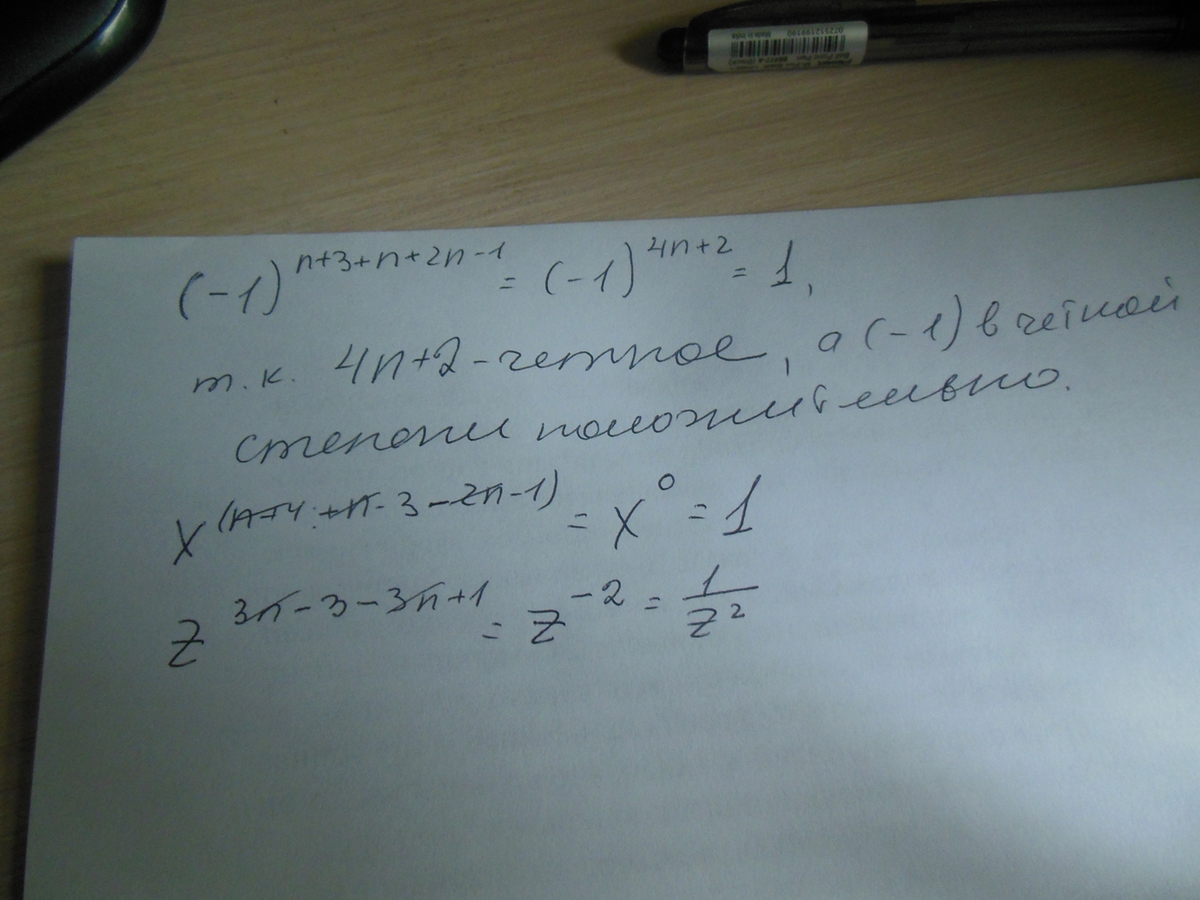 (-1)^{n+3+n+2n-1} = (-1)^{4n+2} = 1,
т.к. 4n+2 - четное, а (-1) в четной
степени положительно.
x^{(n+4+n-3-2n-1)} = x^0 = 1
z^{3n-3-3n+1} = z^{-2} = 1/z^2